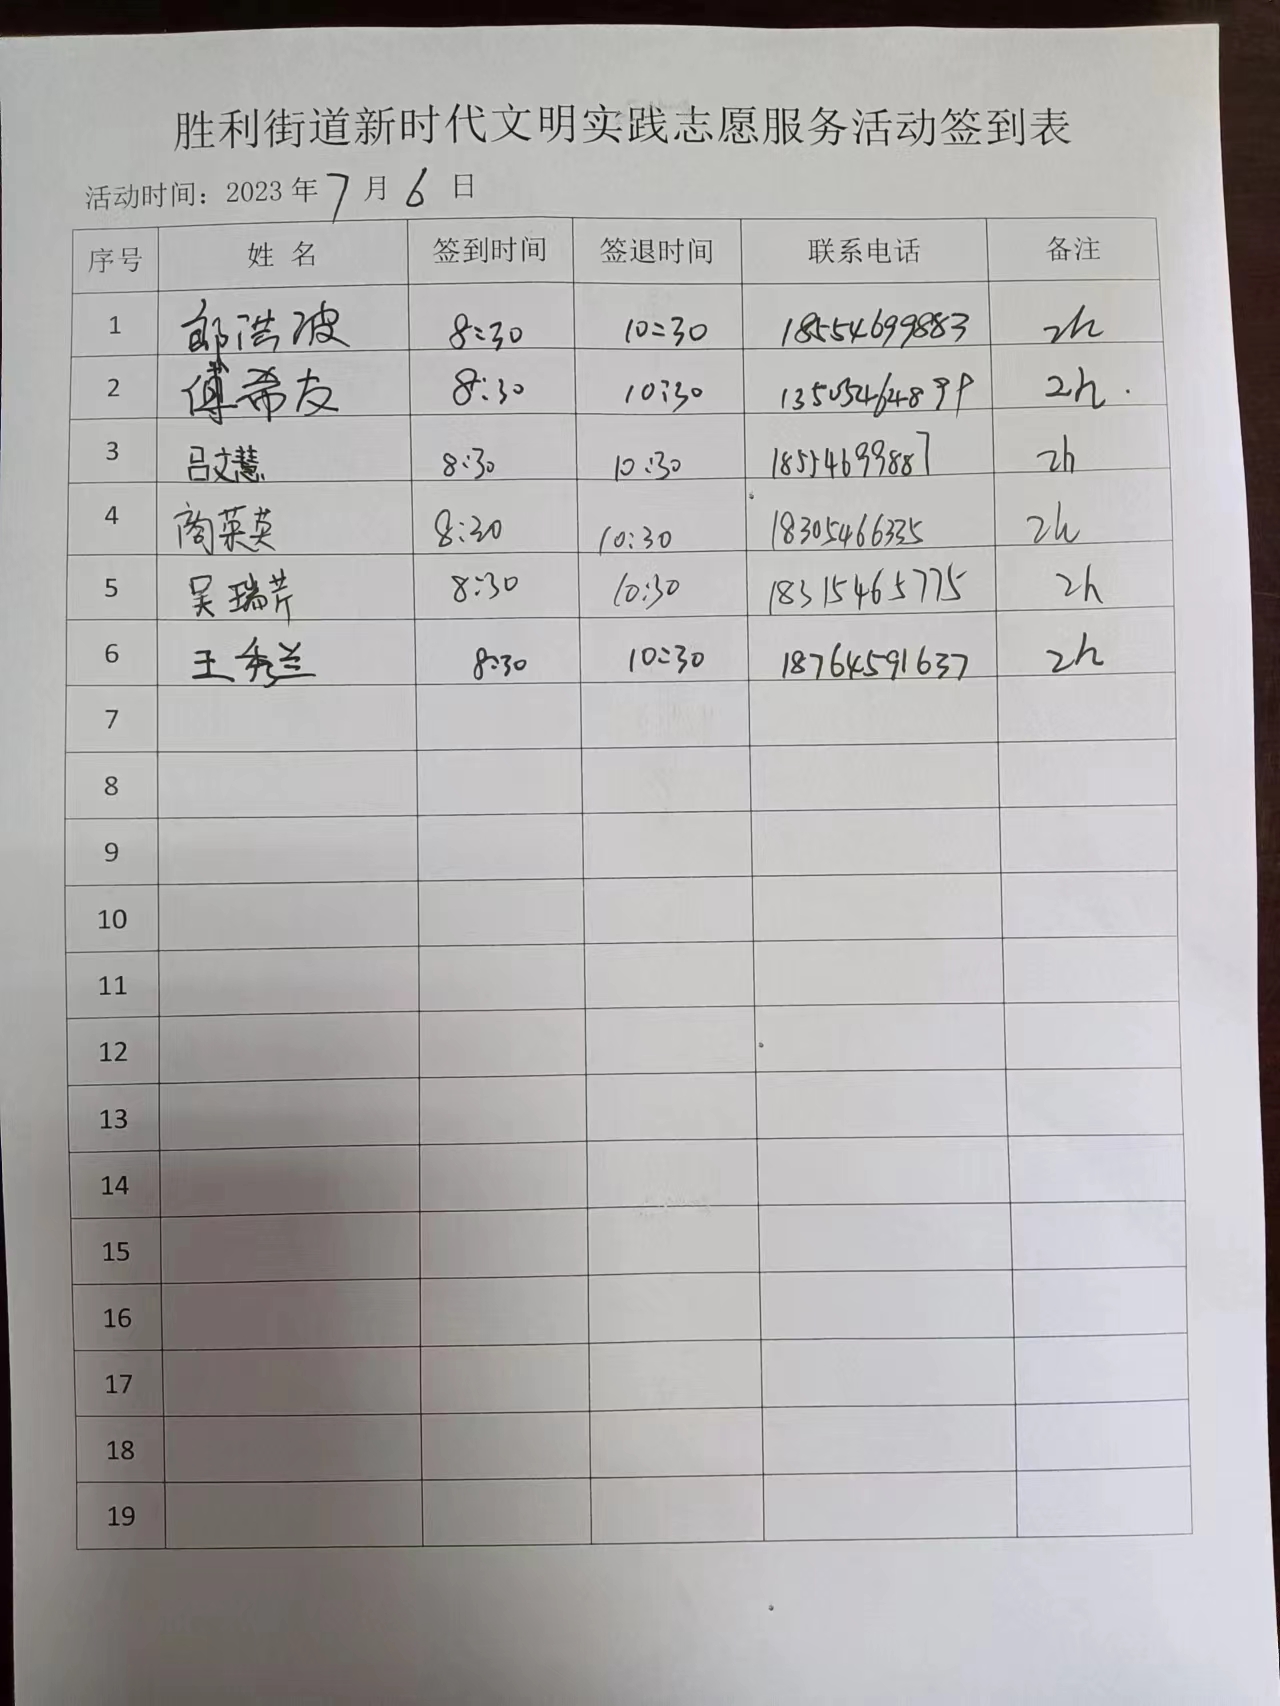 胜利街道新时代文明实践志愿服务活动签到表
活动时间：2023年7月6日
序号 姓 名 签到时间 签退时间 联系电话 备注
1 郎浩波 8:30 10:30 18554699883 2h
2 傅希友 8:30 10:30 13505464899 2h.
3 吕文慧 8:30 10:30 18554699887 2h
4 陶菜英 8:30 10:30 18305466335 2h
5 吴瑞芹 8:30 10:30 18315465775 2h
6 王秀兰 8:30 10:30 18764591637 2h
7
8
9
10
11
12
13
14
15
16
17
18
19